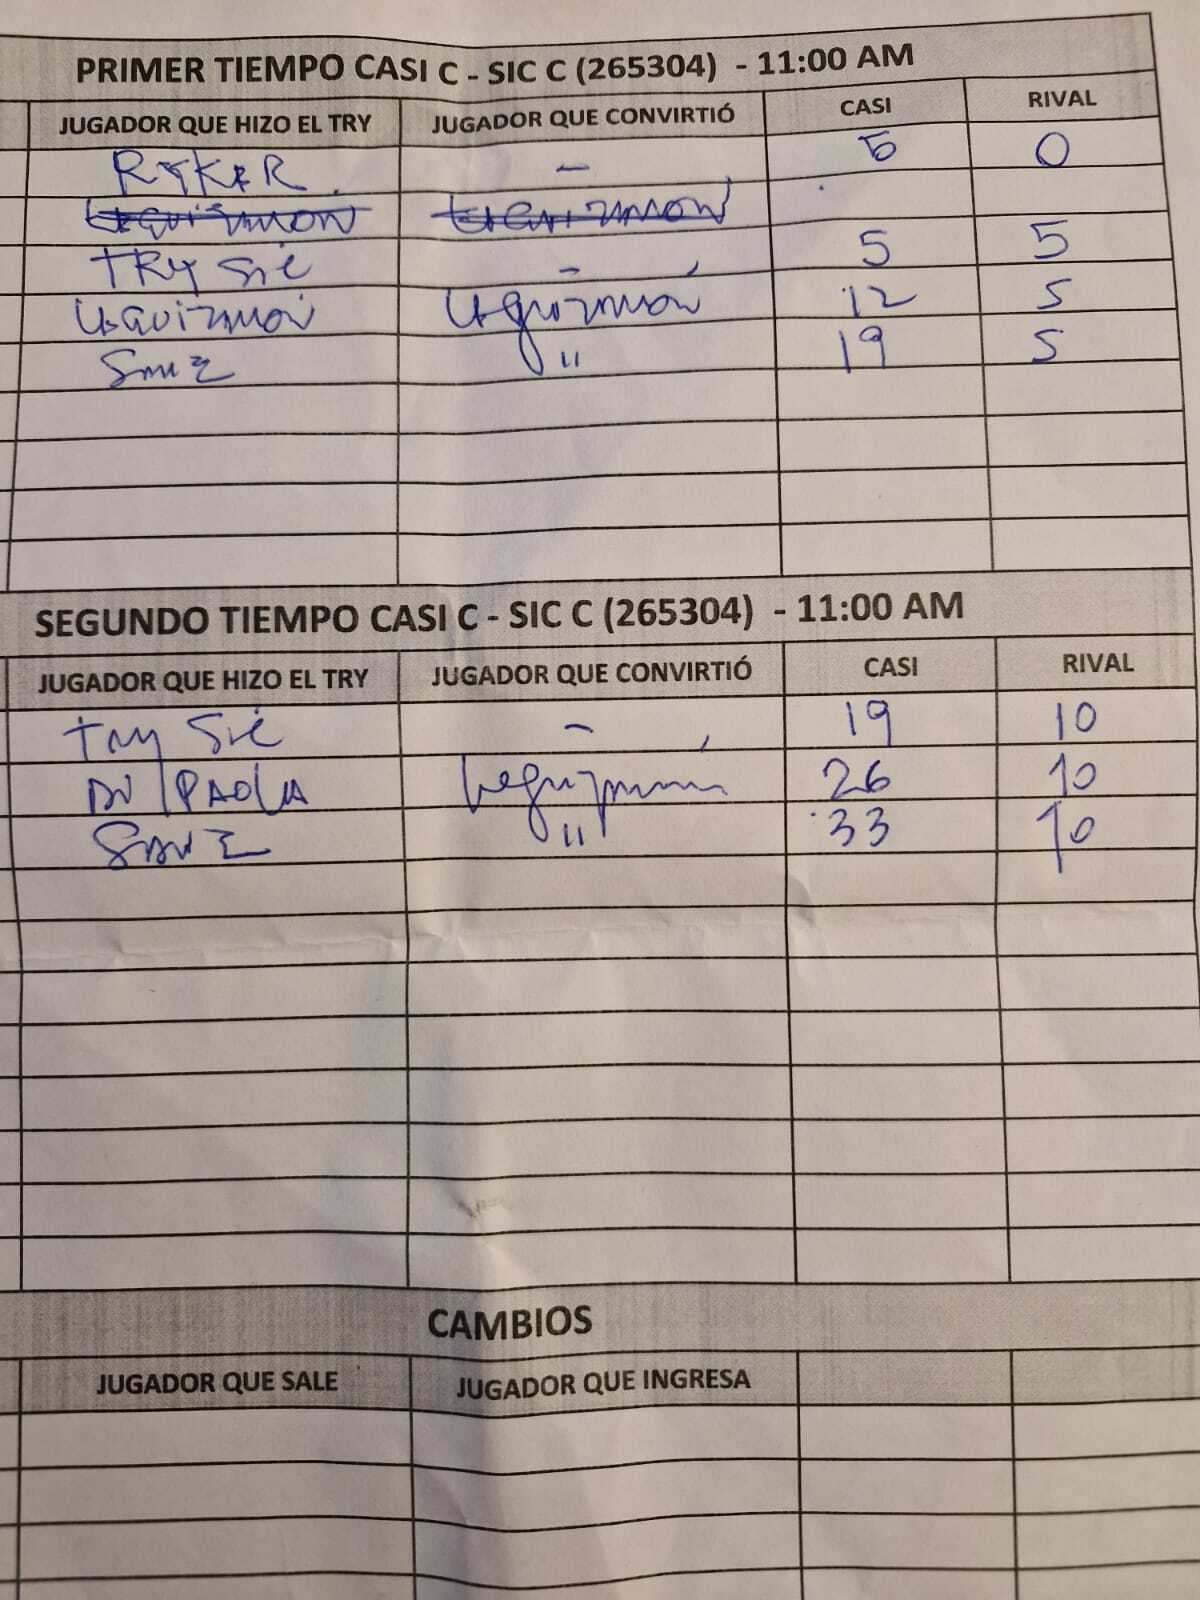 PRIMER TIEMPO CASI C - SIC C (265304) - 11:00 AM
JUGADOR QUE HIZO EL TRY JUGADOR QUE CONVIRTIÓ CASI RIVAL
RYKER - 5 0
Leguizmon Leguizmon
TRY SIC - 5 5
Leguizmón Leguizmón 12 5
" 19 5
SEGUNDO TIEMPO CASI C - SIC C (265304) - 11:00 AM
JUGADOR QUE HIZO EL TRY JUGADOR QUE CONVIRTIÓ CASI RIVAL
TRY SIC - 19 10
DI PAOLA 26 10
" 33 10
CAMBIOS
JUGADOR QUE SALE JUGADOR QUE INGRESA